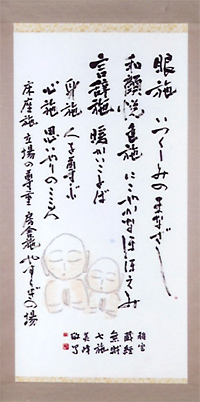 眼施 いつくしみのまなざし
和顔悦色施 にこやかなほほえみ
言辞施 暖かいことば
身施 人を尊ぶ
心施 思いやりのこころ
床座施 立場の尊重 房舎施 やすらぎの場
雑宝
蔵経
無財
七施